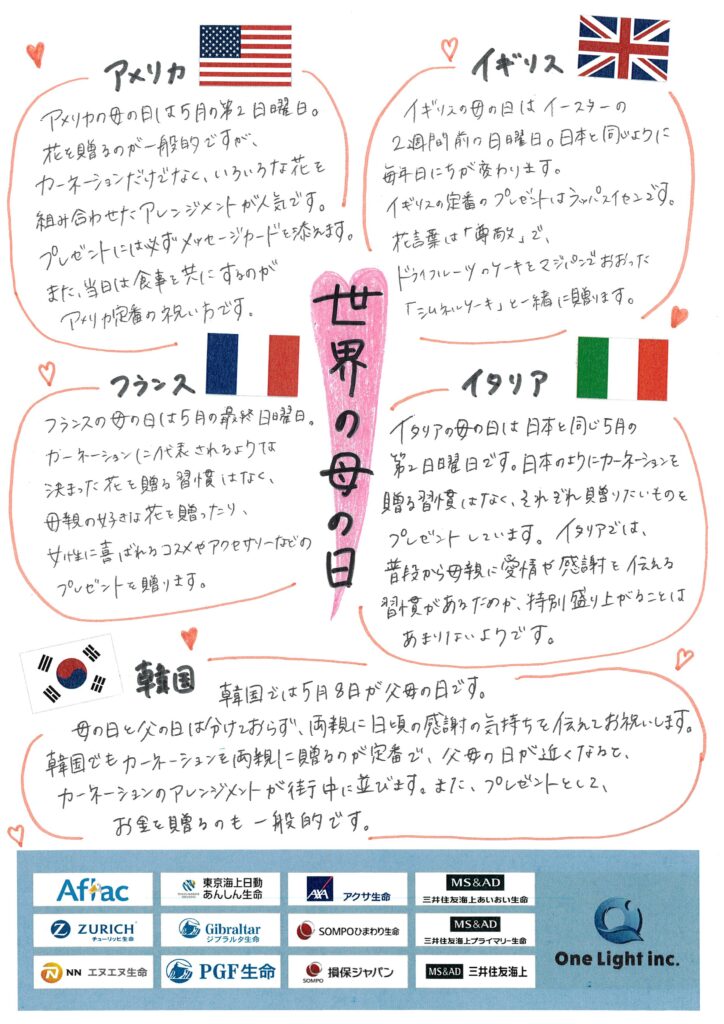 アメリカ
アメリカの母の日は5月の第2日曜日。
花を贈るのが一般的ですが、
カーネーションだけでなく、いろいろな花を
組み合わせたアレンジメントが人気です。
プレゼントには必ずメッセージカードを添えます。
また、当日は食事を共にするのが
アメリカ定番の祝い方です。
イギリス
イギリスの母の日はイースターの
2週間前の日曜日。日本と同じように
毎年日にちが変わります。
イギリスの定番のプレゼントはラッパスイセンです。
花言葉は「尊敬」で、
ドライフルーツのケーキをマジパンでおおった
「シムネルケーキ」と一緒に贈ります。
世界の母の日
フランス
フランスの母の日は5月の最終日曜日。
カーネーションに代表されるような
決まった花を贈る習慣はなく、
母親の好きな花を贈ったり、
女性に喜ばれるコスメやアクセサリーなどの
プレゼントを贈ります。
イタリア
イタリアの母の日は日本と同じ5月の
第2日曜日です。日本のようにカーネーションを
贈る習慣はなく、それぞれ贈りたいものを
プレゼントしています。イタリアでは、
普段から母親に愛情や感謝を伝える
習慣があるためか、特別盛り上がることは
あまりないようです。
韓国
韓国では5月8日が父母の日です。
母の日と父の日は分けておらず、両親に日頃の感謝の気持ちを伝えてお祝いします。
韓国でもカーネーションを両親に贈るのが定番で、父母の日が近くなると、
カーネーションのアレンジメントが街中に並びます。また、プレゼントとして、
お金を贈るのも一般的です。
Aflac
東京海上日動
あんしん生命
AXA アクサ生命
MS&AD
三井住友海上あいおい生命
ZURICH
チューリッヒ生命
Gibraltar
ジブラルタ生命
SOMPOひまわり生命
MS&AD
三井住友海上プライマリー生命
NN エヌエヌ生命
PGF生命
SOMPO 損保ジャパン
MS&AD 三井住友海上
One Light inc.